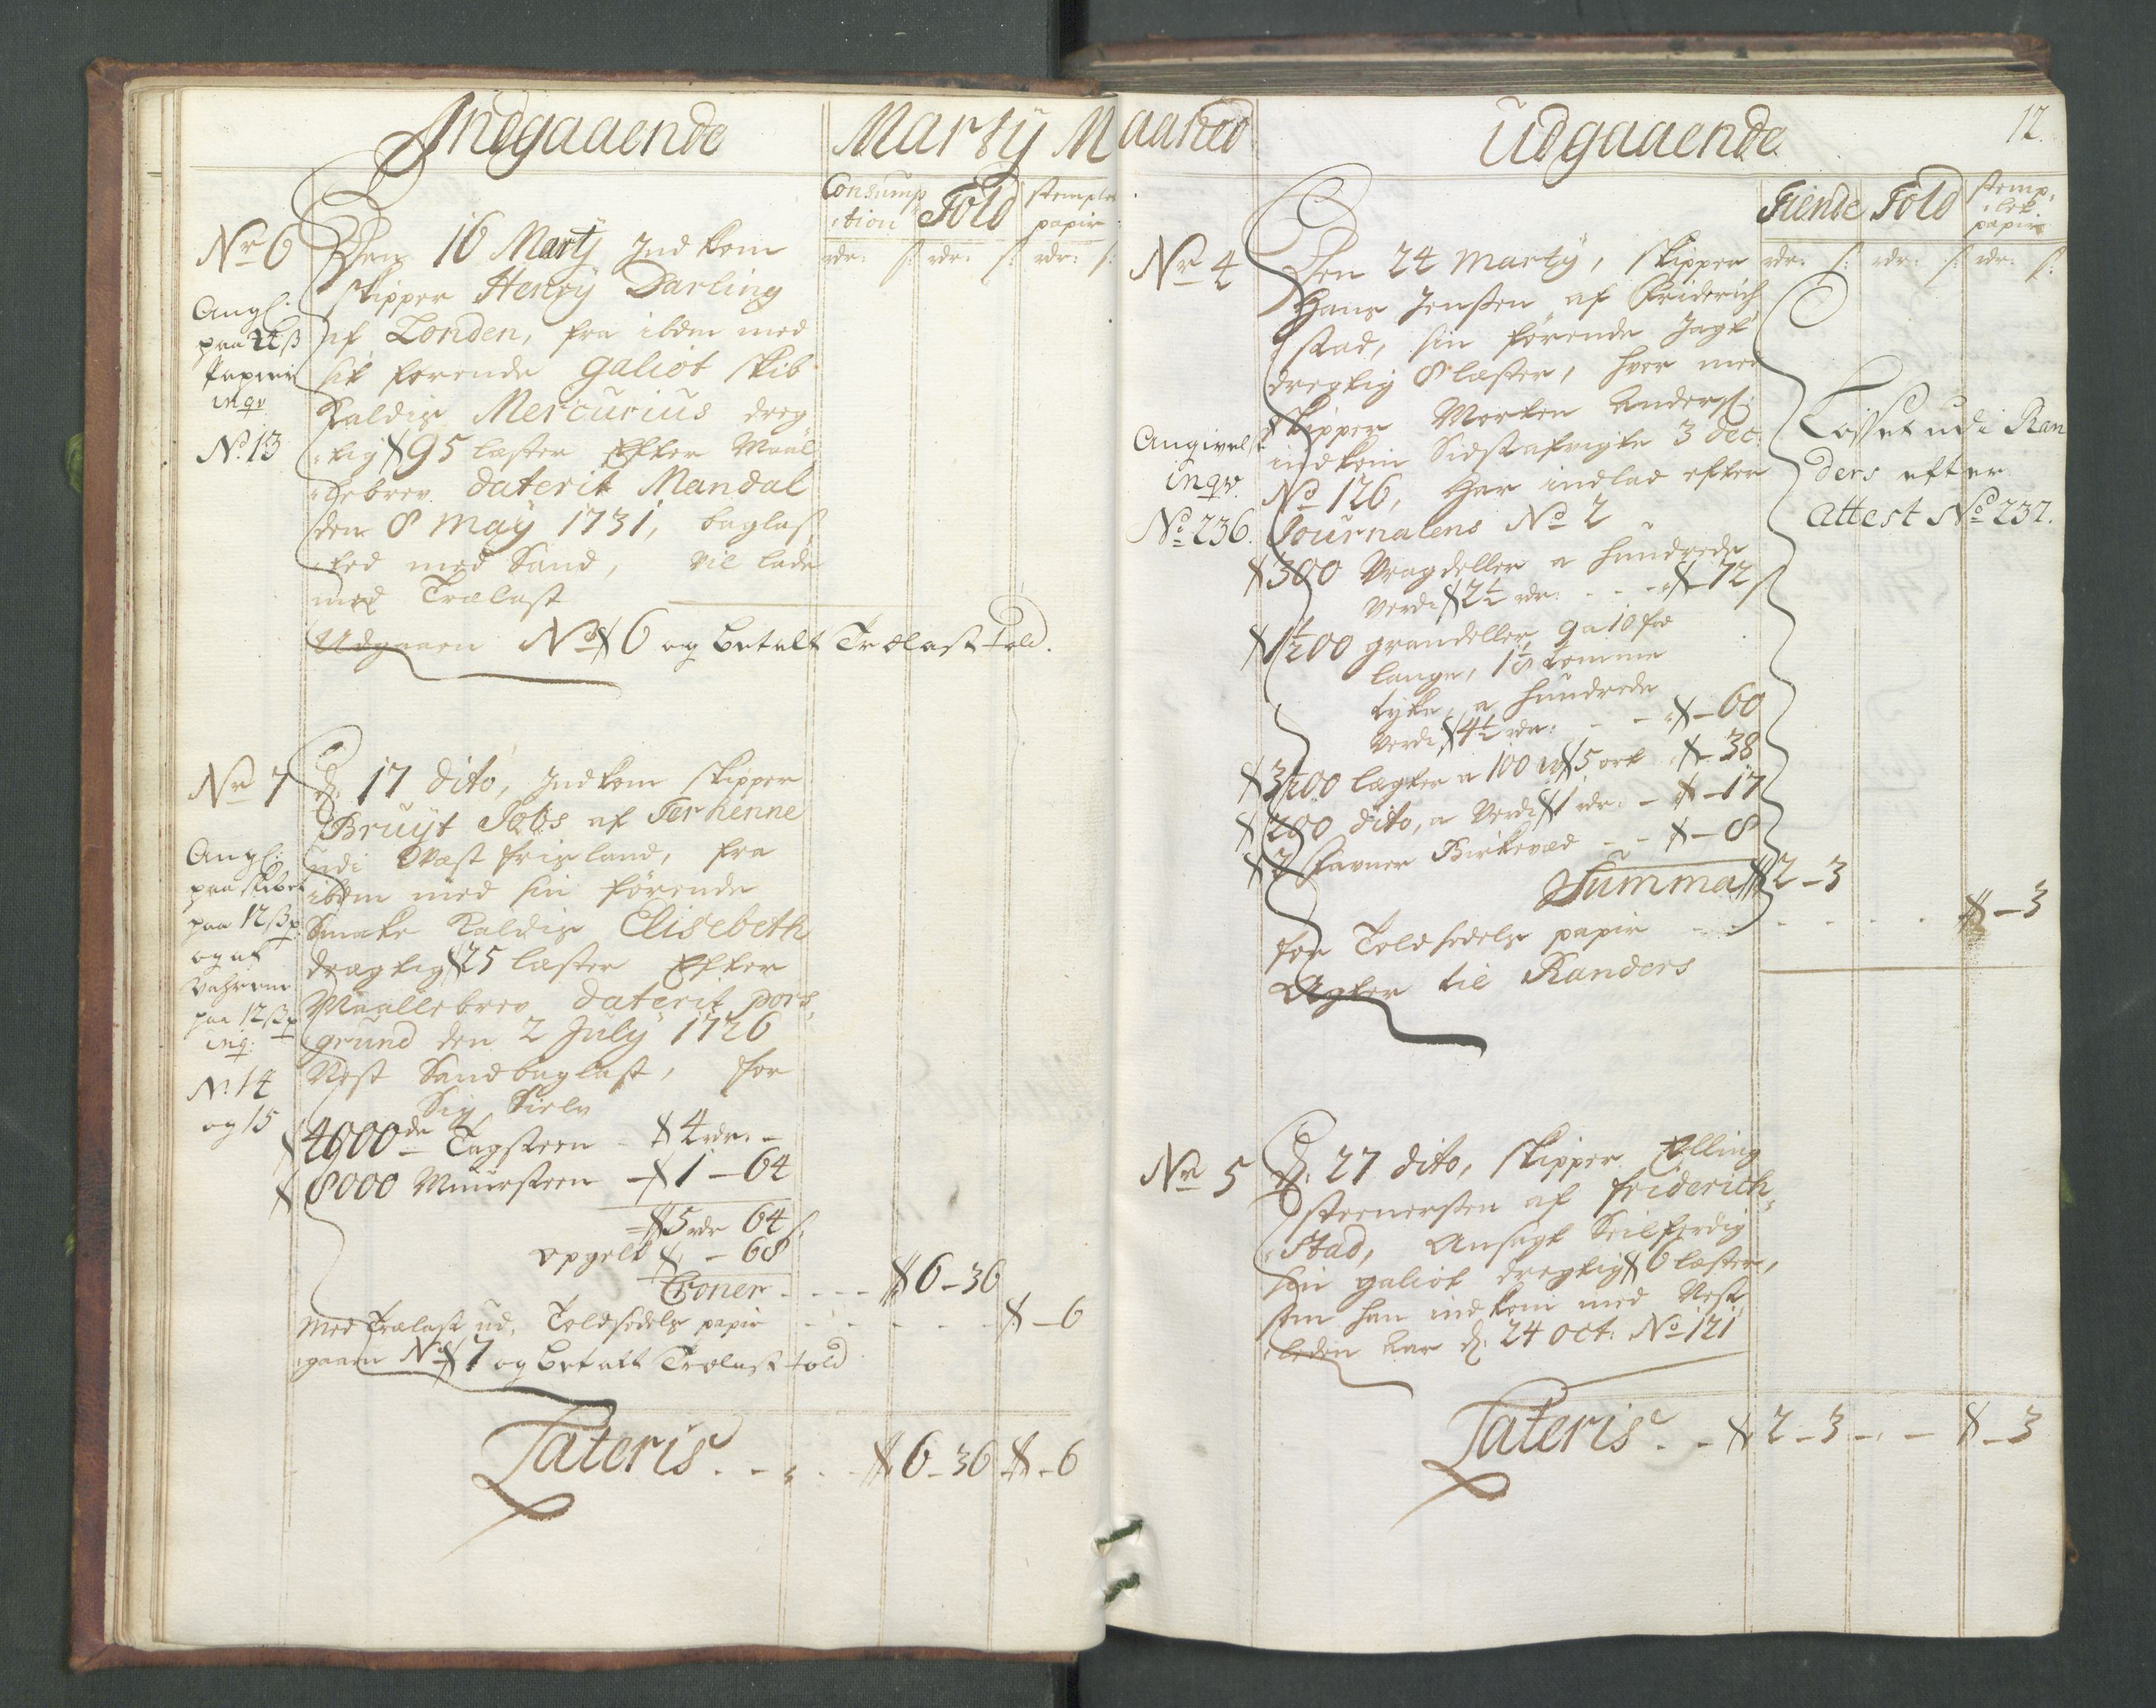 Indgaaende Martÿ Maaned
Consump
:tion Told stemplet
papir
rdr: s: rdr: s: rdr: s:
No 6
Angl:
paa 24 ß
Papiir
inqv
No. 13
Den 16 Martÿ Indkom
skipper Henrÿ Darling
af Londen, fra ibdm med
sit førende Galiot skib
Kaldis Mercurius dreg
:tig 95 læster Efter Maal
:debrev daterit Mandal
den 8 Maÿ 1731, baglas
:ted med Sand, vil lade
med Trælast
Udgaaen No 6 og betalt Trælast told.
No 7
Angl:
paa skibet
paa 12 ß p:
og af
Vahrene
paa 12 ß p
inq:
No. 14
og 15
d: 17 dito, Indkom skipper
Bruÿt Jobs af Terhenne
udi Wæst frisland, fra
ibdm med sin førende
Smake Kaldis Elisebeth
drægtig 25 læster Efter
Maallebrev daterit pors
:grund den 2 Julÿ 1726
Næst Sandbaglast, for
Sig Sielv
4000 de Tagsteen - 4 rdr: -
8000 Muursteen - 1 - 64
5 rdr 64 s:
opgelt - 68
Croner - - - - 6 - 36
Med Trælast ud, Toldsedels papir - - - - - 6
:gaaen No 7 og betalt Trælast told
Lateris. - - - - 6 - 36 - 6
Udgaaende 12.
Tiende Told stemp
:let
papir
rdr: s: rdr: s: rdr: s:
No 4
Angivelse
inqv.
No 236.
Den 24 Martÿ, skipper
Hans Jenssen af Friderich
stad, sin førende Jagt
dregtig 8 læster, hvor med
skipper Morten Anders:
indkom Sidstafvigte 3 dec:
No 126, Har indlad efter
Journalens No 2
300 Vragdeller a hundrede
Verdi 2½ rdr: - - - 72 s
1½00 grandeller, 9 a 10 fod
lange, 1½ tomme
tyke, a hundrede
Verdi 4½ rdr: - - - 60
3½00 lægter a 100 5 ort - 38
200 dito, a Verdi 1 rdr: - - 17
2 Favner Birkeved - - - 8
Summa 2 - 3
for Toldsedels papir - - - - - - 3
Agter til Randers
Losset udi Ran
ders efter
attest No 237.
No 5
d: 27 dito, skipper Elling
steenersen af friderich
:stad, Ansagt Seilferdig
sin galiot dregtig 6 læster,
som han indkom med Næst
:leden Aar d: 24 oct: No 121
Lateris. - 2 - 3 - - - 3